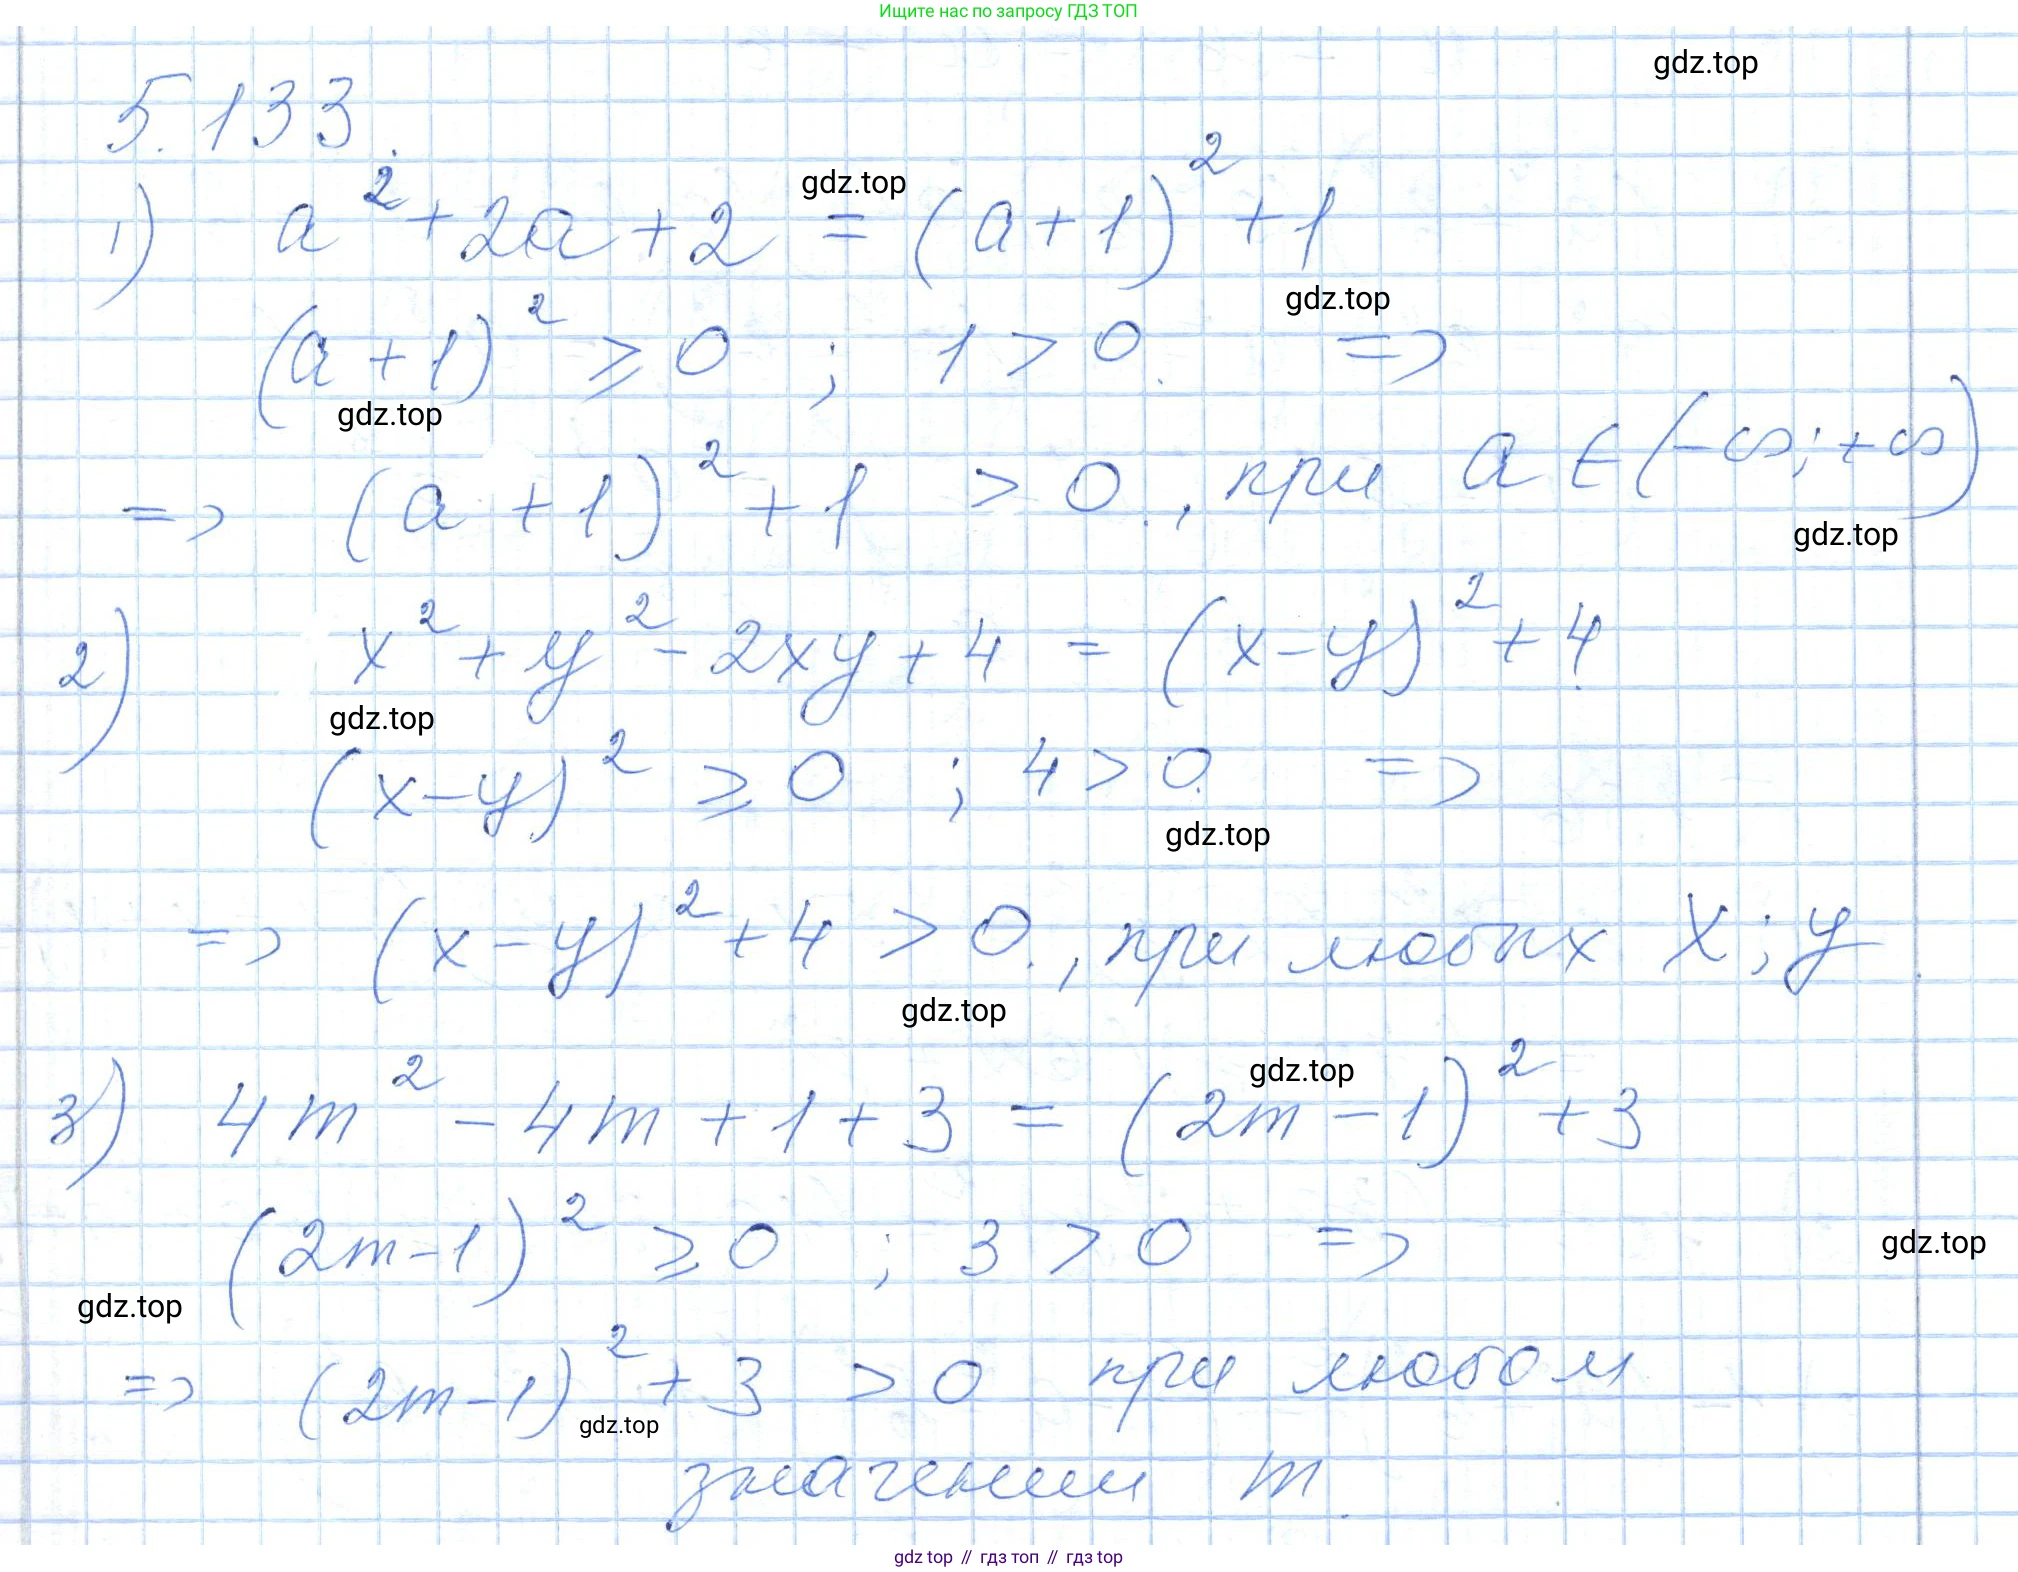 Ищите нас по запросу ГДЗ ТОП
gdz.top
5.133.
gdz.top
1) a² + 2a + 2 = (a + 1)² + 1
gdz.top
(a + 1)² ⩾ 0 ; 1 > 0. =>
gdz.top
=> (a + 1)² + 1 > 0., при a ∈ (-∞; +∞)
gdz.top
2) x² + y² - 2xy + 4 = (x - y)² + 4.
gdz.top
(x - y)² ⩾ 0 ; 4 > 0. =>
gdz.top
=> (x - y)² + 4 > 0., при любых x ; y.
gdz.top
gdz.top
3) 4m² - 4m + 1 + 3 = (2m - 1)² + 3
(2m - 1)² ⩾ 0 ; 3 > 0 =>
gdz.top
gdz.top
=> (2m - 1)² + 3 > 0 при любом
gdz.top
значении m.
gdz top // гдз топ // гдз top